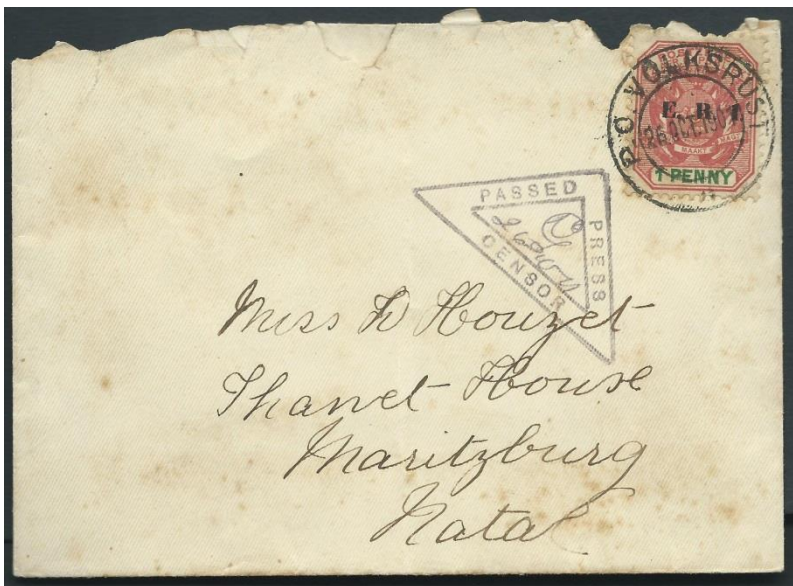 P.O. VOLKSRUST
E. R. I.
26 OCT 190
MAAKT MAGT
1 PENNY
PASSED
PRESS
CENSOR
Miss D Houzet
Thanet House
Maritzburg
Natal